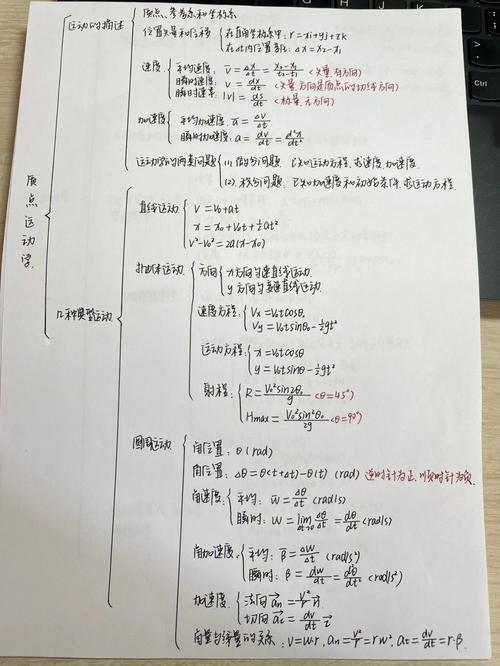 质点、参考系和坐标系
运动的描述
位置矢量和位移 在直角坐标中: r=xi+yj+zk
在Δt内位置变化: Δx=x₂-x₁
速度: 平均速度: v̅=Δx/Δt=(x₂-x₁)/(t₂-t₁) (矢量,有方向)
瞬时速度: v=dx/dt (矢量,方向是质点的切线方向)
瞬时速率: |v|=ds/dt (标量,无方向)
加速度: 平均加速度: a̅=Δv/Δt
瞬时加速度: a=dv/dt=d²x/dt²
运动学的两类问题 (1). 微分问题: 已知运动方程,求速度,加速度.
(2). 积分问题: 已知加速度和初始条件,求运动方程.
质点运动学
几种典型运动
直线运动 v=v₀+at
x=x₀+v₀t+½at²
v²-v₀²=2a(x-x₀)
抛体运动: 方向 x方向匀速直线运动.
y方向匀变速直线运动.
速度方程: Vx=V₀cosθ.
Vy=V₀tsinθ-½gt²
运动方程: x=V₀tcosθ
y=V₀tsinθ-½gt²
射程: R=V₀²sin2θ₀/g (θ=45°)
Hmax=V₀²sin²θ₀/2g (θ=90°)
圆周运动: 角位置: θ(rad)
角位置: Δθ=θ(t+Δt)-θ(t) (rad) 逆时针为正,顺时针为负.
角速度: 平均: w̅=Δθ/Δt (rad/s)
瞬时: w=lim Δt→0 Δθ/Δt=dθ/dt (rad/s)
角加速度: 平均: β̅=Δw/Δt (rad/s²)
瞬时: β=dw/dt=d²θ/dt² (rad/s²)
加速度: 法向 a⃗n=v²/r n⃗
切向 a⃗t=dv/dt t⃗
角量与线量的关系: v=w·r, an=v²/r=rw², at=dv/dt=r·β.